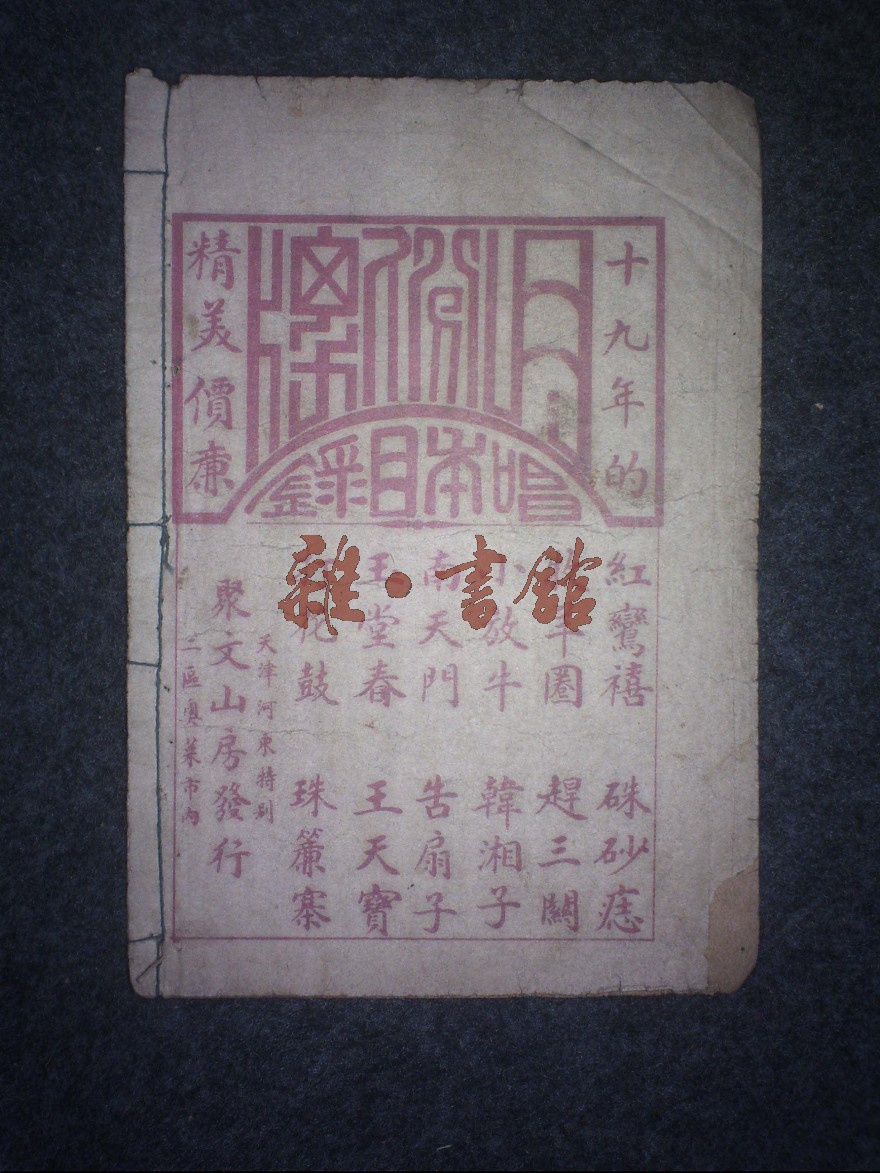 十九年的
月份牌
唱本目錄
精美價廉
紅鸞禧 硃砂痣
羊圈 趕三關
小放牛 韓湘子
南天門 告扇子
玉堂春 王天寶
花鼓 珠簾寨
天津河東特別
聚文山房發行
二區奧菜市內
雜·書館